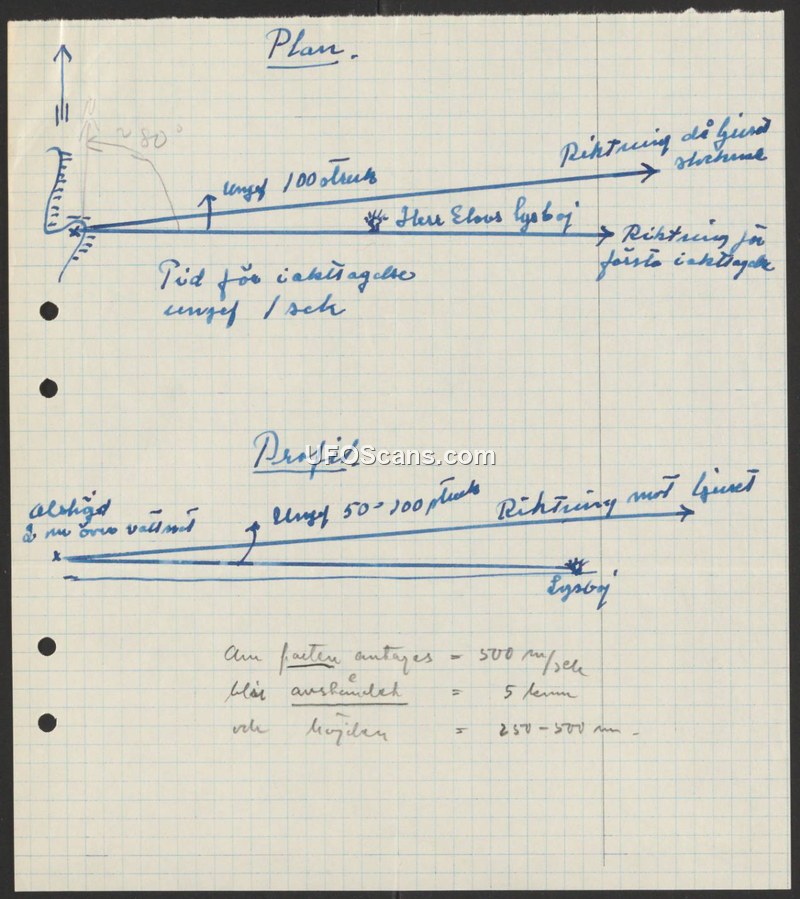 Plan.
N
~80°
Riktning då ljuset
slocknade
ungef 100 streck
Herr Elovs lysboj
Riktning för
första iakttagelse
Tid för iakttagelse
ungef 1 sek
Profil
UFOScans.com
2 m över vattnet
Ungef 50-100 streck
Riktning mot ljuset
Lysboj
Om farten antages = 500 m/sek
blir avståndet = 5 km
och höjden = 250-500 m.